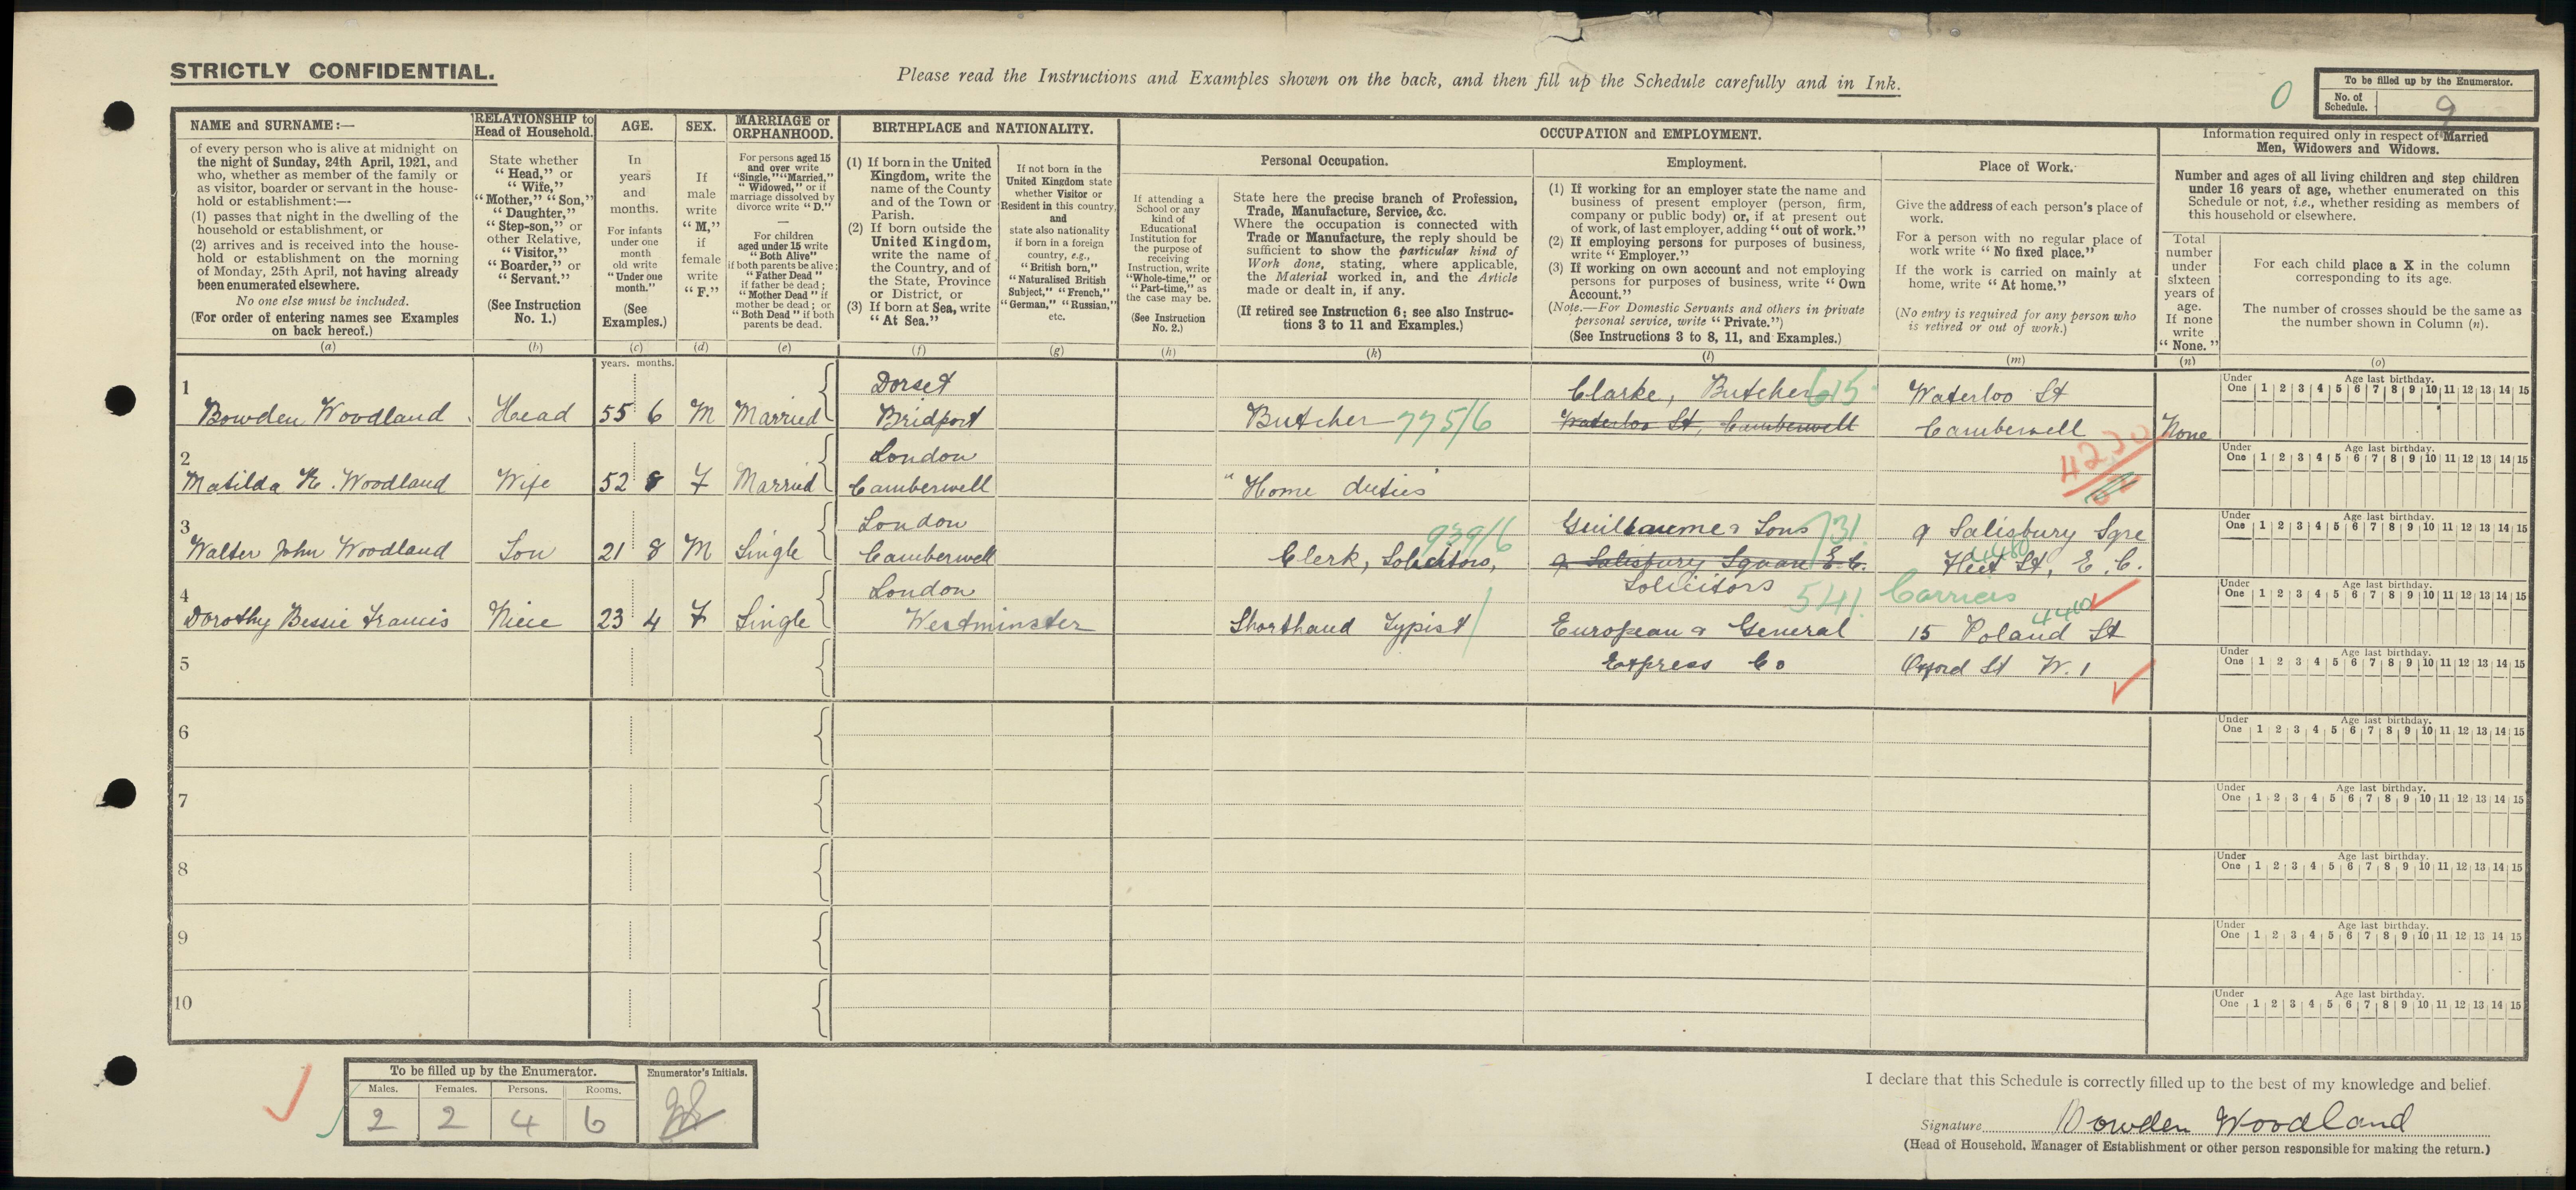 STRICTLY CONFIDENTIAL.
Please read the Instructions and Examples shown on the back, and then fill up the Schedule carefully and in Ink.
0
To be filled up by the Enumerator.
No. of Schedule. 9
NAME and SURNAME:—
of every person who is alive at midnight on
the night of Sunday, 24th April, 1921, and
who, whether as member of the family or
as visitor, boarder or servant in the house-
hold or establishment:—
(1) passes that night in the dwelling of the
household or establishment, or
(2) arrives and is received into the house-
hold or establishment on the morning
of Monday, 25th April, not having already
been enumerated elsewhere.
No one else must be included.
(For order of entering names see Examples
on back hereof.)
(a)
RELATIONSHIP to
Head of Household.
State whether
"Head," or
"Wife,"
"Mother," "Son,"
"Daughter,"
"Step-son," or
other Relative,
"Visitor,"
"Boarder," or
"Servant."
(See Instruction
No. 1.)
(b)
AGE.
In
years
and
months.
For infants
under one
month
old write
"Under one
month."
(See
Examples.)
(c)
SEX.
If
male
write
"M,"
if
female
write
"F."
(d)
MARRIAGE or
ORPHANHOOD.
For persons aged 15
and over write
"Single," "Married,"
"Widowed," or if
marriage dissolved by
divorce write "D."
—
For children
aged under 15 write
"Both Alive"
if both parents be alive;
"Father Dead"
if father be dead;
"Mother Dead" if
mother be dead; or
"Both Dead" if both
parents be dead.
(e)
BIRTHPLACE and NATIONALITY.
(1) If born in the United
Kingdom, write the
name of the County
and of the Town or
Parish.
(2) If born outside the
United Kingdom,
write the name of
the Country, and of
the State, Province
or District, or
(3) If born at Sea, write
"At Sea."
(f)
If not born in the
United Kingdom state
whether Visitor or
Resident in this country,
and
state also nationality
if born in a foreign
country, e.g.,
"British born,"
"Naturalised British
Subject," "French,"
"German," "Russian,"
etc.
(g)
OCCUPATION and EMPLOYMENT.
If attending a
School or any
kind of
Educational
Institution for
the purpose of
receiving
Instruction, write
"Whole-time," or
"Part-time," as
the case may be.
(See Instruction
No. 2.)
(h)
Personal Occupation.
State here the precise branch of Profession,
Trade, Manufacture, Service, &c.
Where the occupation is connected with
Trade or Manufacture, the reply should be
sufficient to show the particular kind of
Work done, stating, where applicable,
the Material worked in, and the Article
made or dealt in, if any.
(If retired see Instruction 6; see also Instruc-
tions 3 to 11 and Examples.)
(k)
Employment.
(1) If working for an employer state the name and
business of present employer (person, firm,
company or public body) or, if at present out
of work, of last employer, adding "out of work."
(2) If employing persons for purposes of business,
write "Employer."
(3) If working on own account and not employing
persons for purposes of business, write "Own
Account."
(Note.—For Domestic Servants and others in private
personal service, write "Private.")
(See Instructions 3 to 8, 11, and Examples.)
(l)
Place of Work.
Give the address of each person's place of
work.
For a person with no regular place of
work write "No fixed place."
If the work is carried on mainly at
home, write "At home."
(No entry is required for any person who
is retired or out of work.)
(m)
Information required only in respect of Married
Men, Widowers and Widows.
Number and ages of all living children and step children
under 16 years of age, whether enumerated on this
Schedule or not, i.e., whether residing as members of
this household or elsewhere.
Total
number
under
sixteen
years of
age.
If none
write
"None."
(n)
For each child place a X in the column
corresponding to its age.
The number of crosses should be the same as
the number shown in Column (n).
(o)
years. months.
1 Bowden Woodland Head 55 6 M Married Dorset
Bridport Butcher 775/6 Clarke, Butcher 615
Waterloo St, Camberwell Waterloo St
Camberwell None
Under One Age last birthday. 1 2 3 4 5 6 7 8 9 10 11 12 13 14 15
2 Matilda K. Woodland Wife 52 8 F Married London
Camberwell "Home duties"
Under One Age last birthday. 1 2 3 4 5 6 7 8 9 10 11 12 13 14 15
3 Walter John Woodland Son 21 8 M Single London
Camberwell Clerk, Solicitors, 939/6 Guillaume & Sons 731
9 Salisbury Square E.C.
Solicitors 9 Salisbury Sqre
Fleet St, E.C. 4480
Under One Age last birthday. 1 2 3 4 5 6 7 8 9 10 11 12 13 14 15
4 Dorothy Bessie Francis Niece 23 4 F Single London
Westminster Shorthand Typist 541 Carriers
European & General
Express Co 15 Poland St 4410
Oxford St W.1
Under One Age last birthday. 1 2 3 4 5 6 7 8 9 10 11 12 13 14 15
5
Under One Age last birthday. 1 2 3 4 5 6 7 8 9 10 11 12 13 14 15
6
Under One Age last birthday. 1 2 3 4 5 6 7 8 9 10 11 12 13 14 15
7
Under One Age last birthday. 1 2 3 4 5 6 7 8 9 10 11 12 13 14 15
8
Under One Age last birthday. 1 2 3 4 5 6 7 8 9 10 11 12 13 14 15
9
Under One Age last birthday. 1 2 3 4 5 6 7 8 9 10 11 12 13 14 15
10
Under One Age last birthday. 1 2 3 4 5 6 7 8 9 10 11 12 13 14 15
To be filled up by the Enumerator.
Males. Females. Persons. Rooms.
2 2 4 6
Enumerator's Initials.
I declare that this Schedule is correctly filled up to the best of my knowledge and belief.
Signature Bowden Woodland
(Head of Household, Manager of Establishment or other person responsible for making the return.)